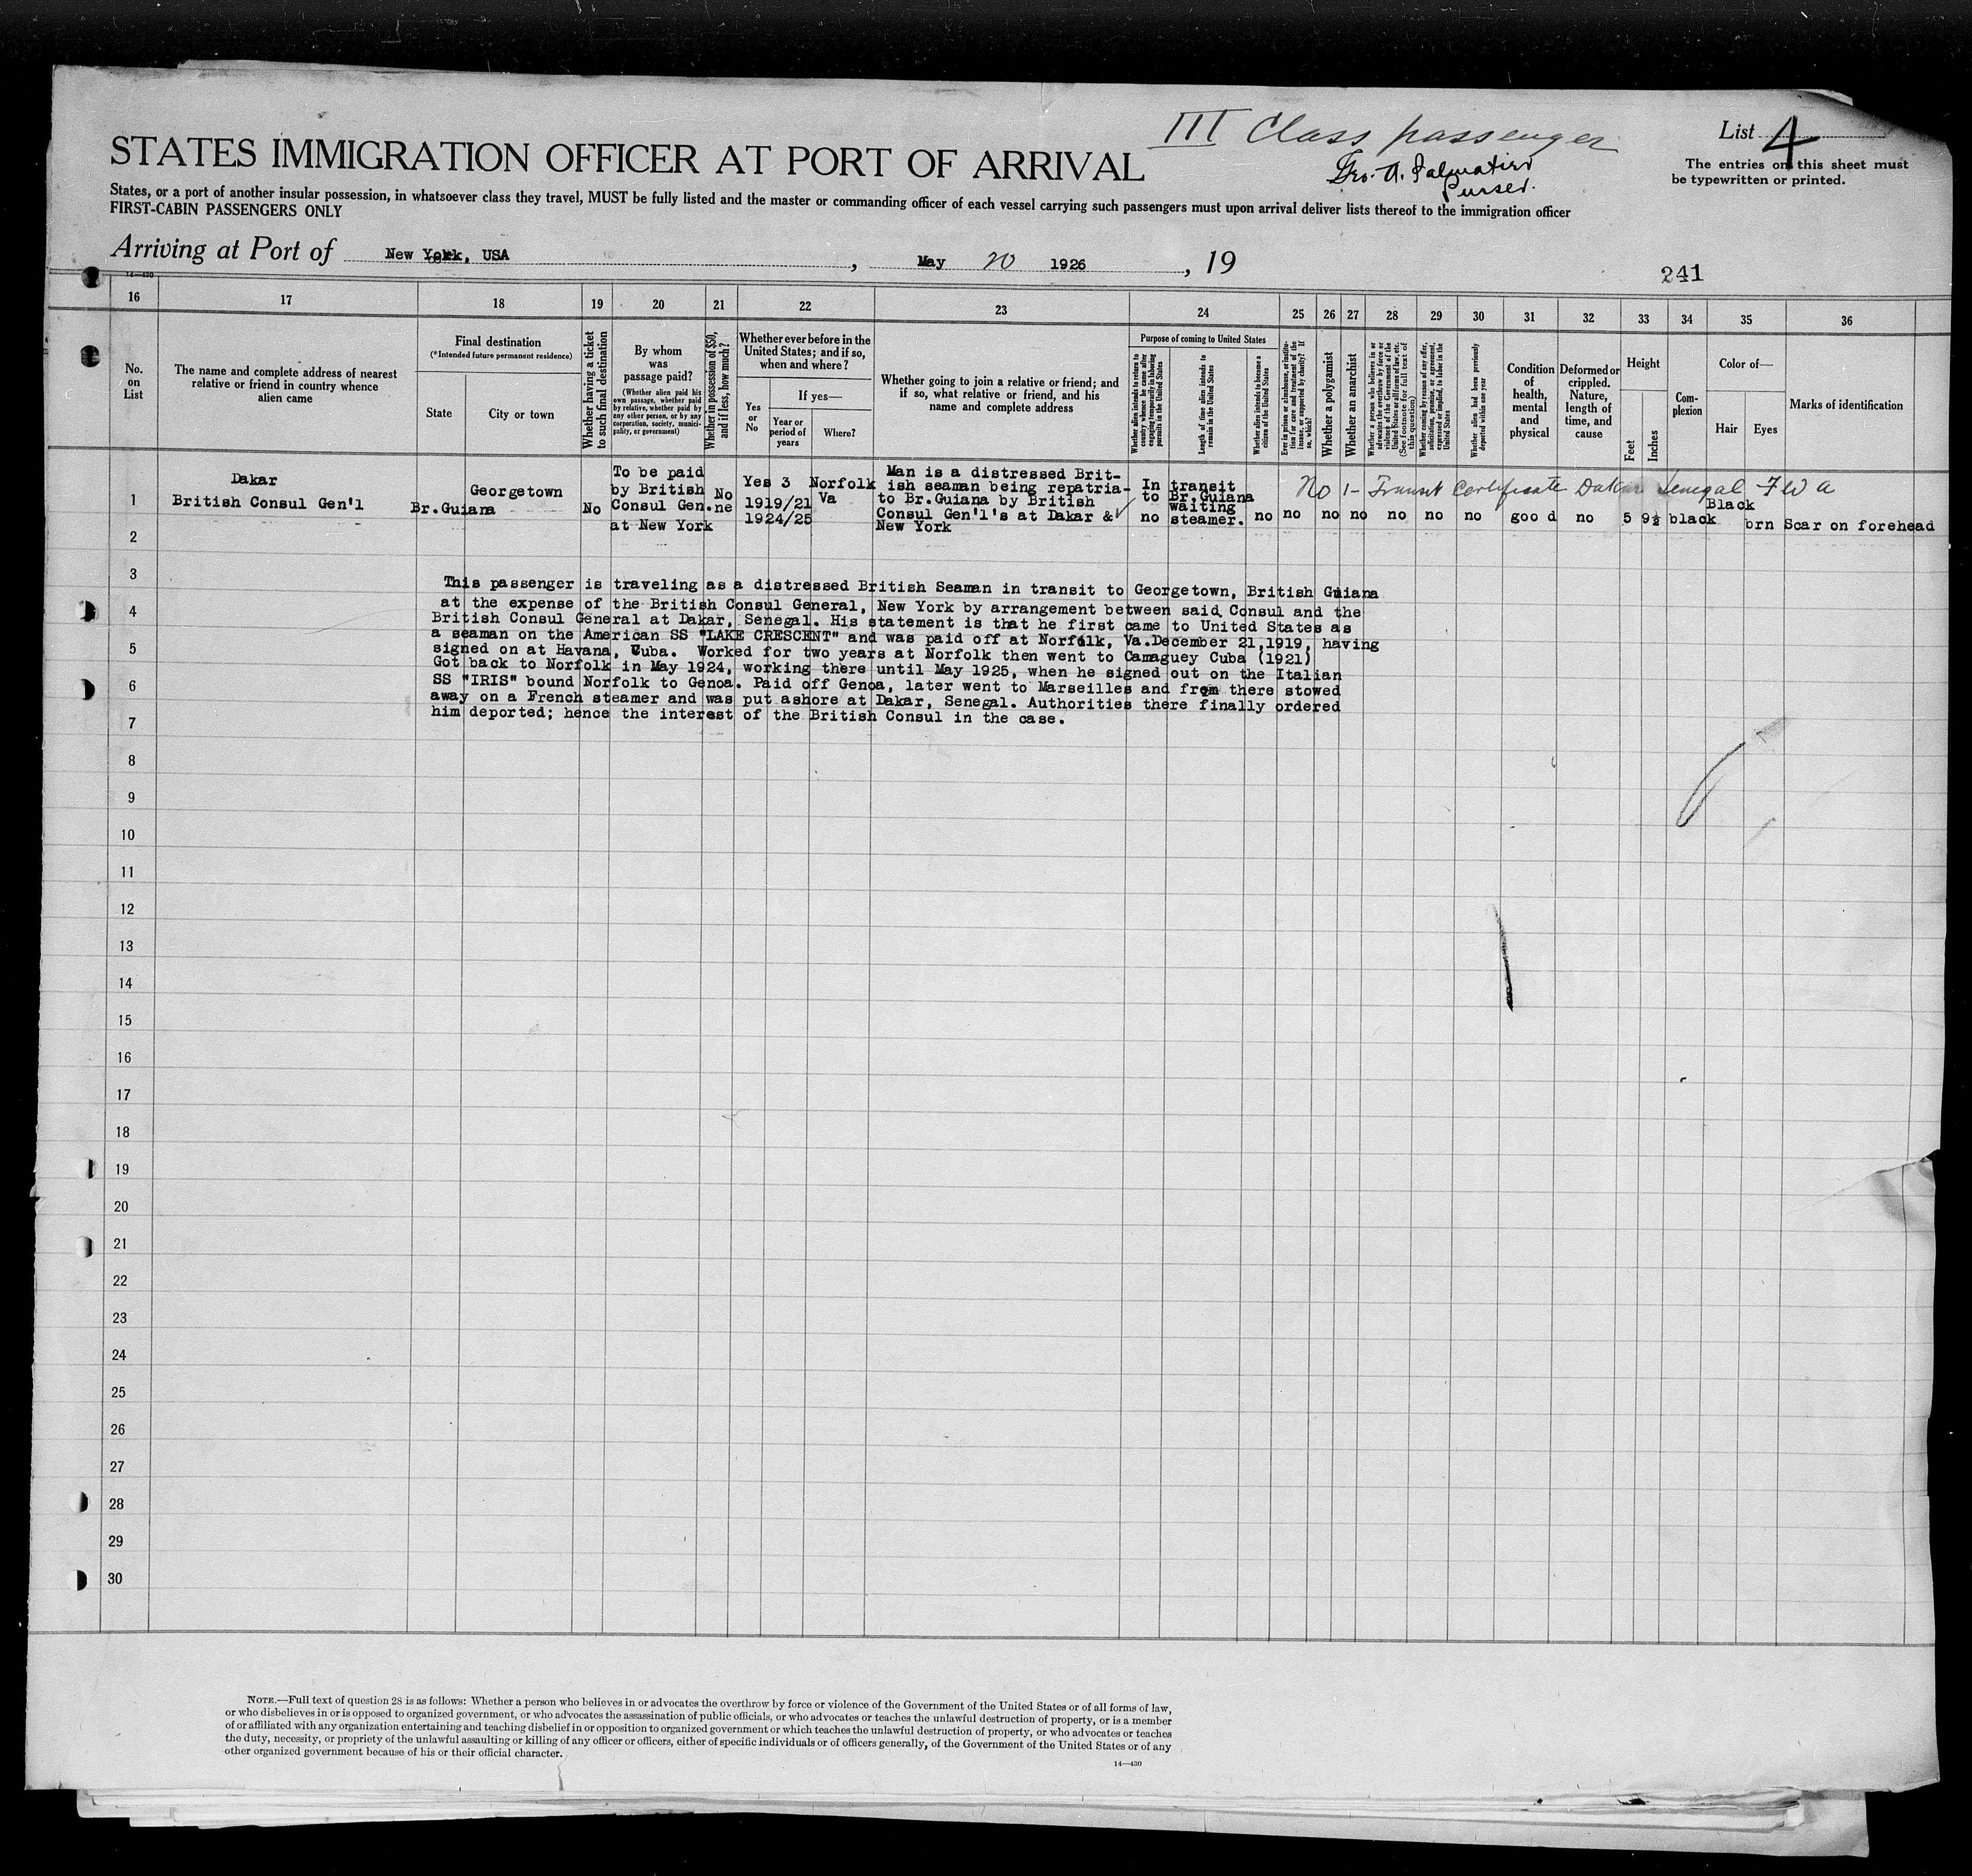 III Class passenger
List 4
STATES IMMIGRATION OFFICER AT PORT OF ARRIVAL
Geo. A. Palmatier
Purser.
The entries on this sheet must
be typewritten or printed.
States, or a port of another insular possession, in whatsoever class they travel, MUST be fully listed and the master or commanding officer of each vessel carrying such passengers must upon arrival deliver lists thereof to the immigration officer
FIRST-CABIN PASSENGERS ONLY
Arriving at Port of New York, USA, May 20 1926, 19
241
14-430
16 17 18 19 20 21 22 23 24 25 26 27 28 29 30 31 32 33 34 35 36
No. on List
The name and complete address of nearest relative or friend in country whence alien came
Final destination
(*Intended future permanent residence)
State
City or town
Whether having a ticket to such final destination
By whom was passage paid?
(Whether alien paid his own passage, whether paid by relative, whether paid by any other person, or by any corporation, society, municipality, or government)
Whether in possession of $50, and if less, how much?
Whether ever before in the United States; and if so, when and where?
Yes or No
If yes—
Year or period of years
Where?
Whether going to join a relative or friend; and if so, what relative or friend, and his name and complete address
Purpose of coming to United States
Whether alien intends to return to country whence he came after engaging temporarily in laboring pursuits in the United States
Length of time alien intends to remain in the United States
Whether alien intends to become a citizen of the United States
Ever in prison or almshouse, or institution for care and treatment of the insane, or supported by charity? If so, which?
Whether a polygamist
Whether an anarchist
Whether a person who believes in or advocates the overthrow by force or violence of the Government of the United States or all forms of law, etc. (See footnote for full text of this question)
Whether coming by reason of any offer, solicitation, promise, or agreement, expressed or implied, to labor in the United States
Whether alien had been previously deported within one year
Condition of health, mental and physical
Deformed or crippled. Nature, length of time, and cause
Height
Feet
Inches
Complexion
Color of—
Hair
Eyes
Marks of identification
1
Dakar
British Consul Gen'l
Br.Guiana
Georgetown
No
To be paid
by British
Consul Gen.
at New York
No
ne
Yes 3
1919/21
1924/25
Norfolk
Va
Man is a distressed Brit-
ish seaman being repatria-
to Br.Guiana by British
Consul Gen'l's at Dakar &
New York
no
In transit
to Br.Guiana
waiting
steamer.
no
No 1- Transit Certificate Dakar Senegal FWA
no no no no no no good no 5 9½ black Black brn Scar on forehead
2
3
This passenger is traveling as a distressed British Seaman in transit to Georgetown, British Guiana
4
at the expense of the British Consul General, New York by arrangement between said Consul and the
British Consul General at Dakar, Senegal. His statement is that he first came to United States as
a seaman on the American SS "LAKE CRESCENT" and was paid off at Norfolk, Va.December 21,1919, having
5
signed on at Havana, Cuba. Worked for two years at Norfolk then went to Camaguey Cuba (1921)
Got back to Norfolk in May 1924, working there until May 1925, when he signed out on the Italian
6
SS "IRIS" bound Norfolk to Genoa. Paid off Genoa, later went to Marseilles and from there stowed
away on a French steamer and was put ashore at Dakar, Senegal. Authorities there finally ordered
7
him deported; hence the interest of the British Consul in the case.
8
9
10
11
12
13
14
15
16
17
18
19
20
21
22
23
24
25
26
27
28
29
30
NOTE.—Full text of question 28 is as follows: Whether a person who believes in or advocates the overthrow by force or violence of the Government of the United States or of all forms of law,
or who disbelieves in or is opposed to organized government, or who advocates the assassination of public officials, or who advocates or teaches the unlawful destruction of property, or is a member
of or affiliated with any organization entertaining and teaching disbelief in or opposition to organized government or which teaches the unlawful destruction of property, or who advocates or teaches
the duty, necessity, or propriety of the unlawful assaulting or killing of any officer or officers, either of specific individuals or of officers generally, of the Government of the United States or of any
other organized government because of his or their official character.
14—430